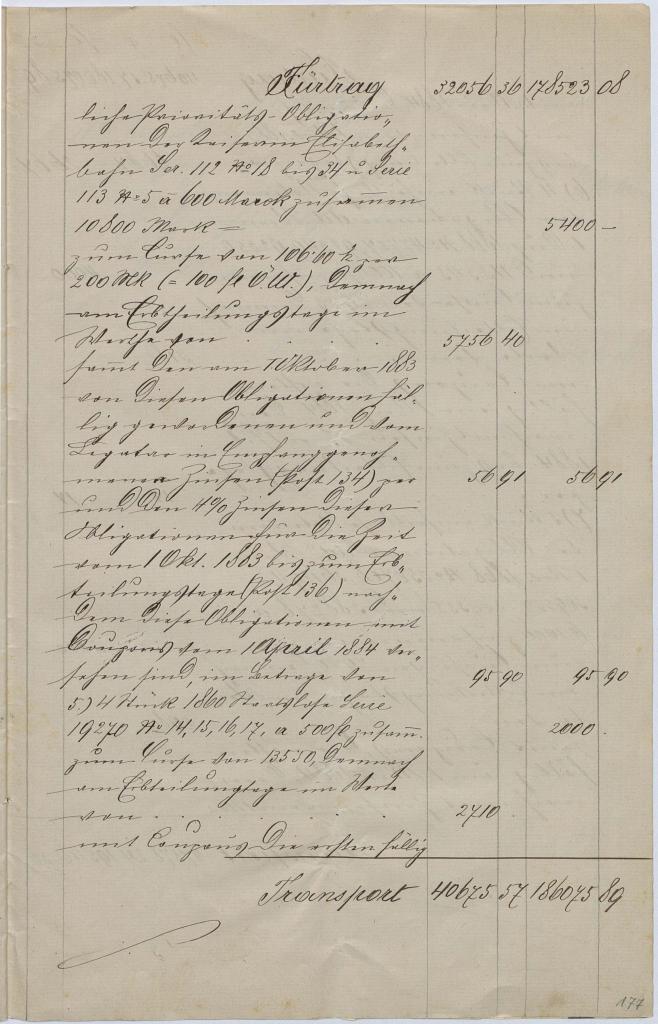 Fürtrag 32056 36 178523 08
liche Prioritäts-Obligatio„
nen der Kaiserin Elisabeth-
bahn Ser. 112 No 18 bis 34 u Serie
113 No 5 à 600 Marck zusammen
10800 Mark = 5400 –
zum Curse von 106·60 kr per
200 Mk (= 100 fl Ö.W.), demnach
am Erbtheilungstage im
Werthe von . . . 5756 40
sammt den am 1 Oktober 1883
von diesen Obligationen fäl-
lig gewordenen und vom
Legatar in Empfang genoh-
menen Zinsen (Post 134) per 56 91 56 91
und den 4% Zinsen dieser
Obligationen für die Zeit
vom 1 Okt. 1883 bis zum Erb„
teilungstage (Post 136) nach„
dem diese Obligationen mit
Coupons vom 1 April 1884 ver„
sehen sind, im Betrage von 95 90 95 90
5.) 4 Stück 1860 Staatslose Serie
19270 No 14, 15, 16, 17, a 500 fl zusamm. 2000 .
zum Curse von 135 50, demnach
am Erbteilungtage im Werte
von . . . . 2710 .
mit Coupons die ersten fällig
Transport 40675 57 186075 89
177